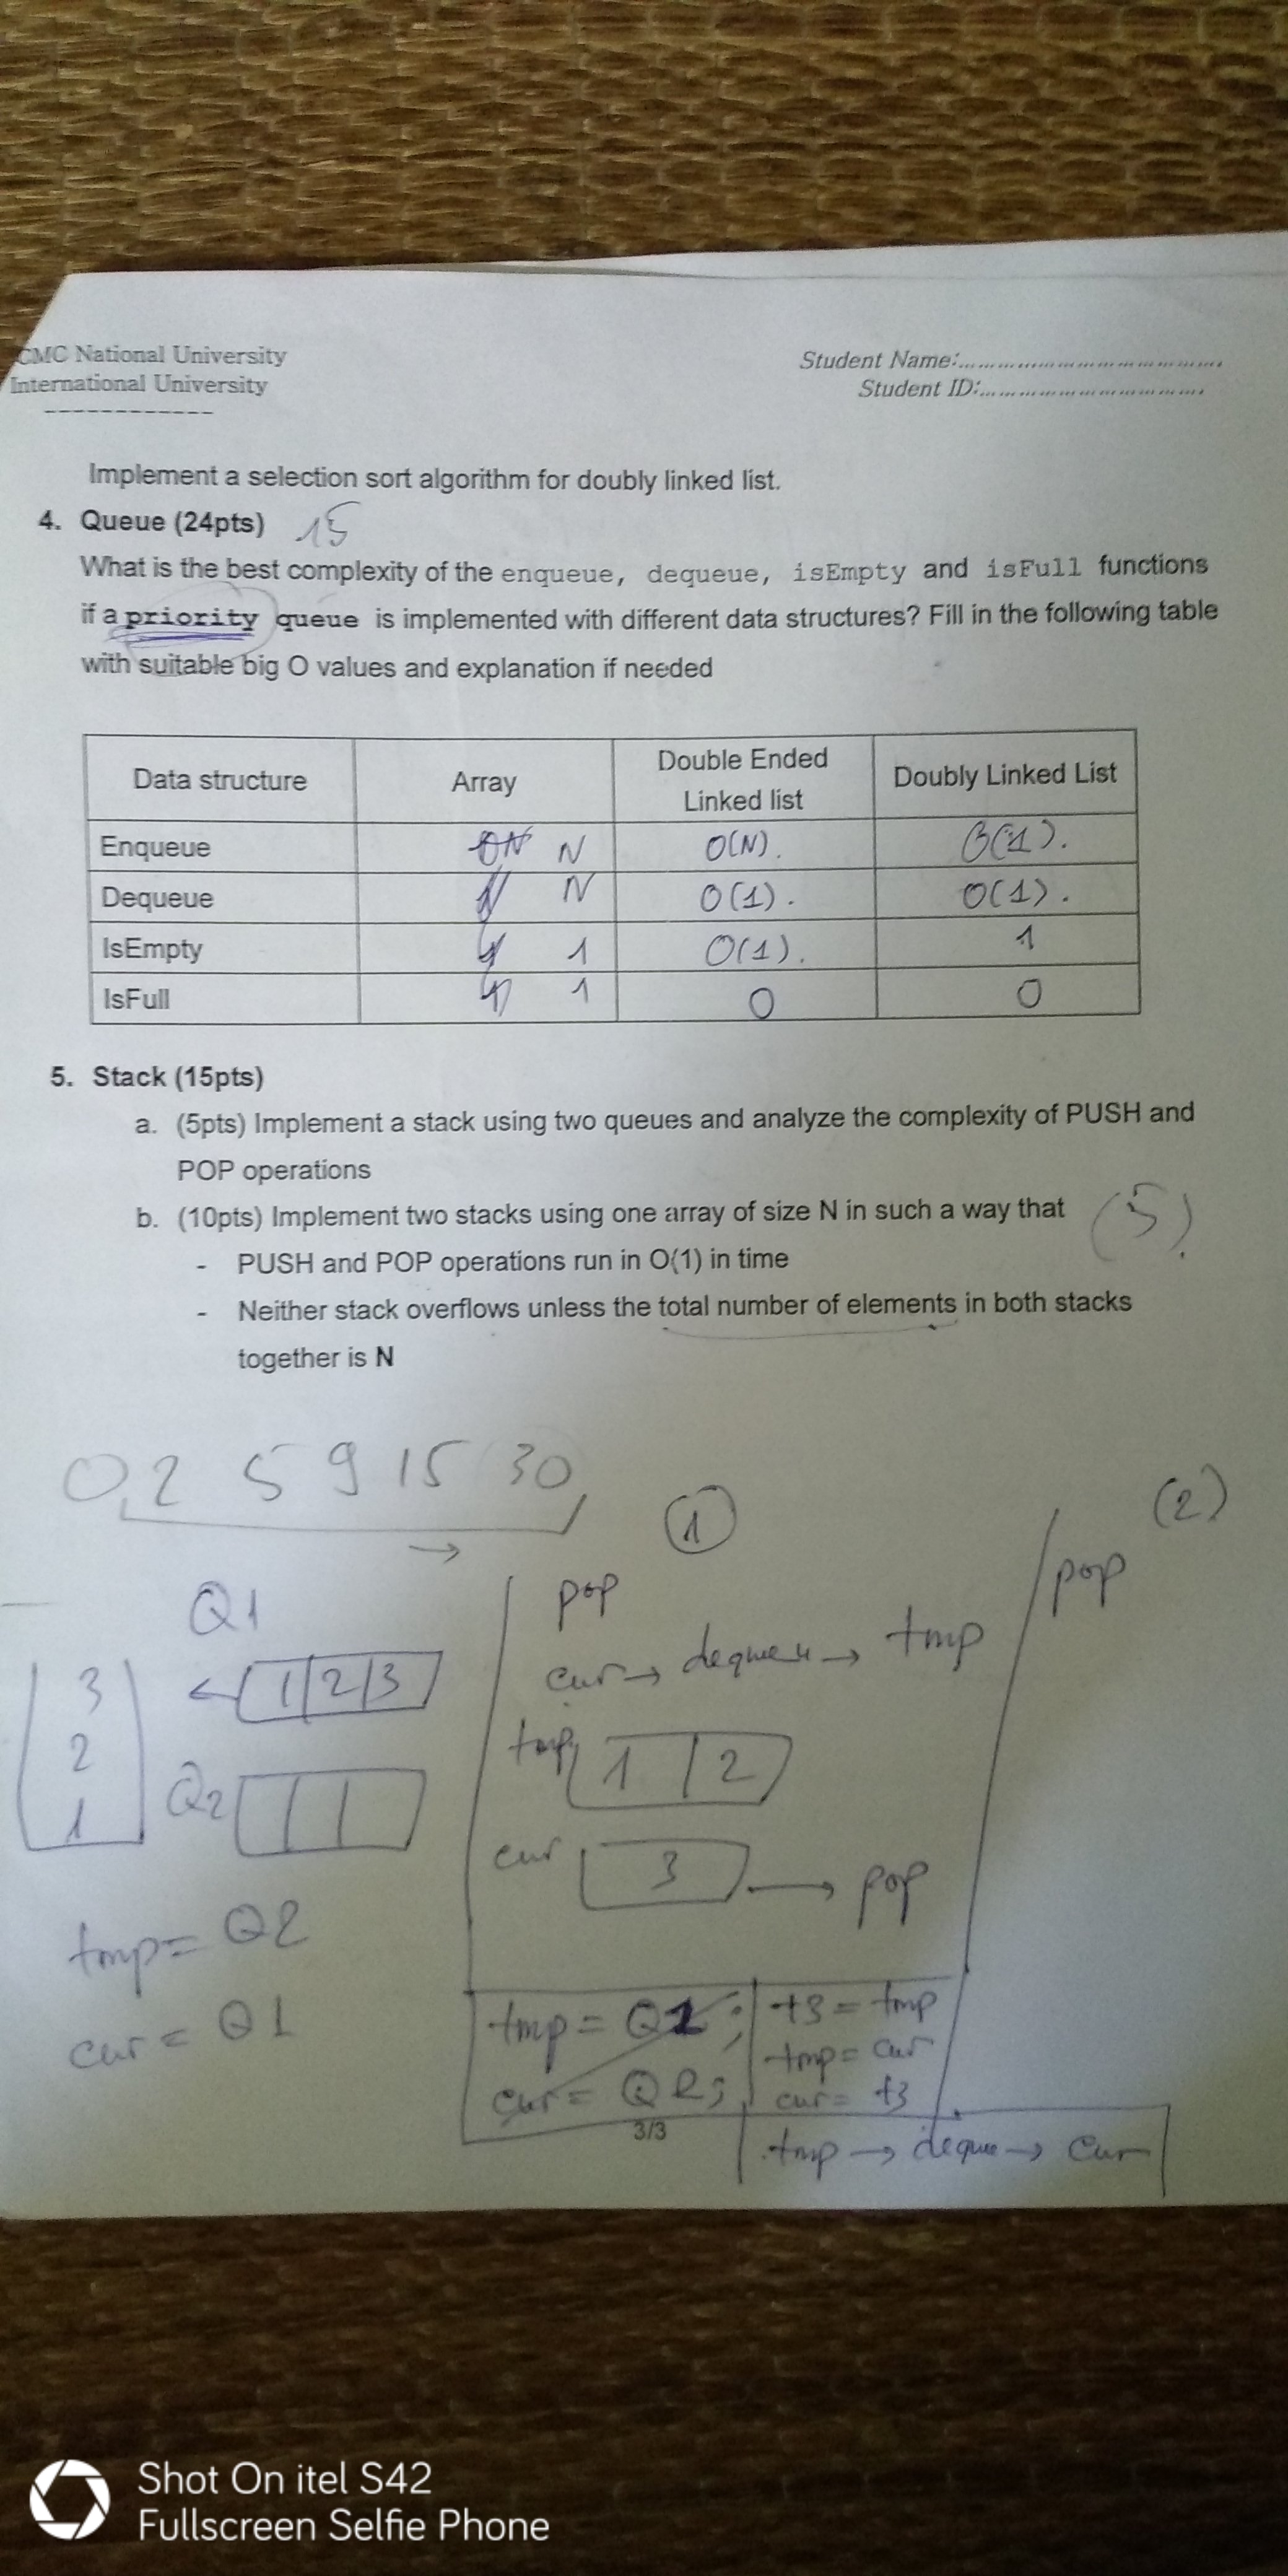 CMC National University
International University
------------
Student Name:........................................
Student ID:..................................
Implement a selection sort algorithm for doubly linked list.
4. Queue (24pts) 15
What is the best complexity of the enqueue, dequeue, isEmpty and isFull functions
if a priority queue is implemented with different data structures? Fill in the following table
with suitable big O values and explanation if needed
Data structure Array Double Ended Linked list Doubly Linked List
Enqueue N O(N). O(1).
Dequeue N O(1). O(1).
IsEmpty 1 O(1). 1
IsFull 1 0 0
5. Stack (15pts)
a. (5pts) Implement a stack using two queues and analyze the complexity of PUSH and
POP operations
b. (10pts) Implement two stacks using one array of size N in such a way that (5)
- PUSH and POP operations run in O(1) in time
- Neither stack overflows unless the total number of elements in both stacks
together is N
0,2 5 9 15 30
→
Q1
3
2
1
← 1 2 3
Q2
tmp = Q2
cur = Q1
1
pop
cur → dequeu → tmp
tmp 1 2
cur 3 → pop
tmp = Q1;
cur = Q2;
t3 = tmp
tmp = cur
cur = t3
tmp → deque → cur
(2)
pop
3/3
Shot On itel S42
Fullscreen Selfie Phone